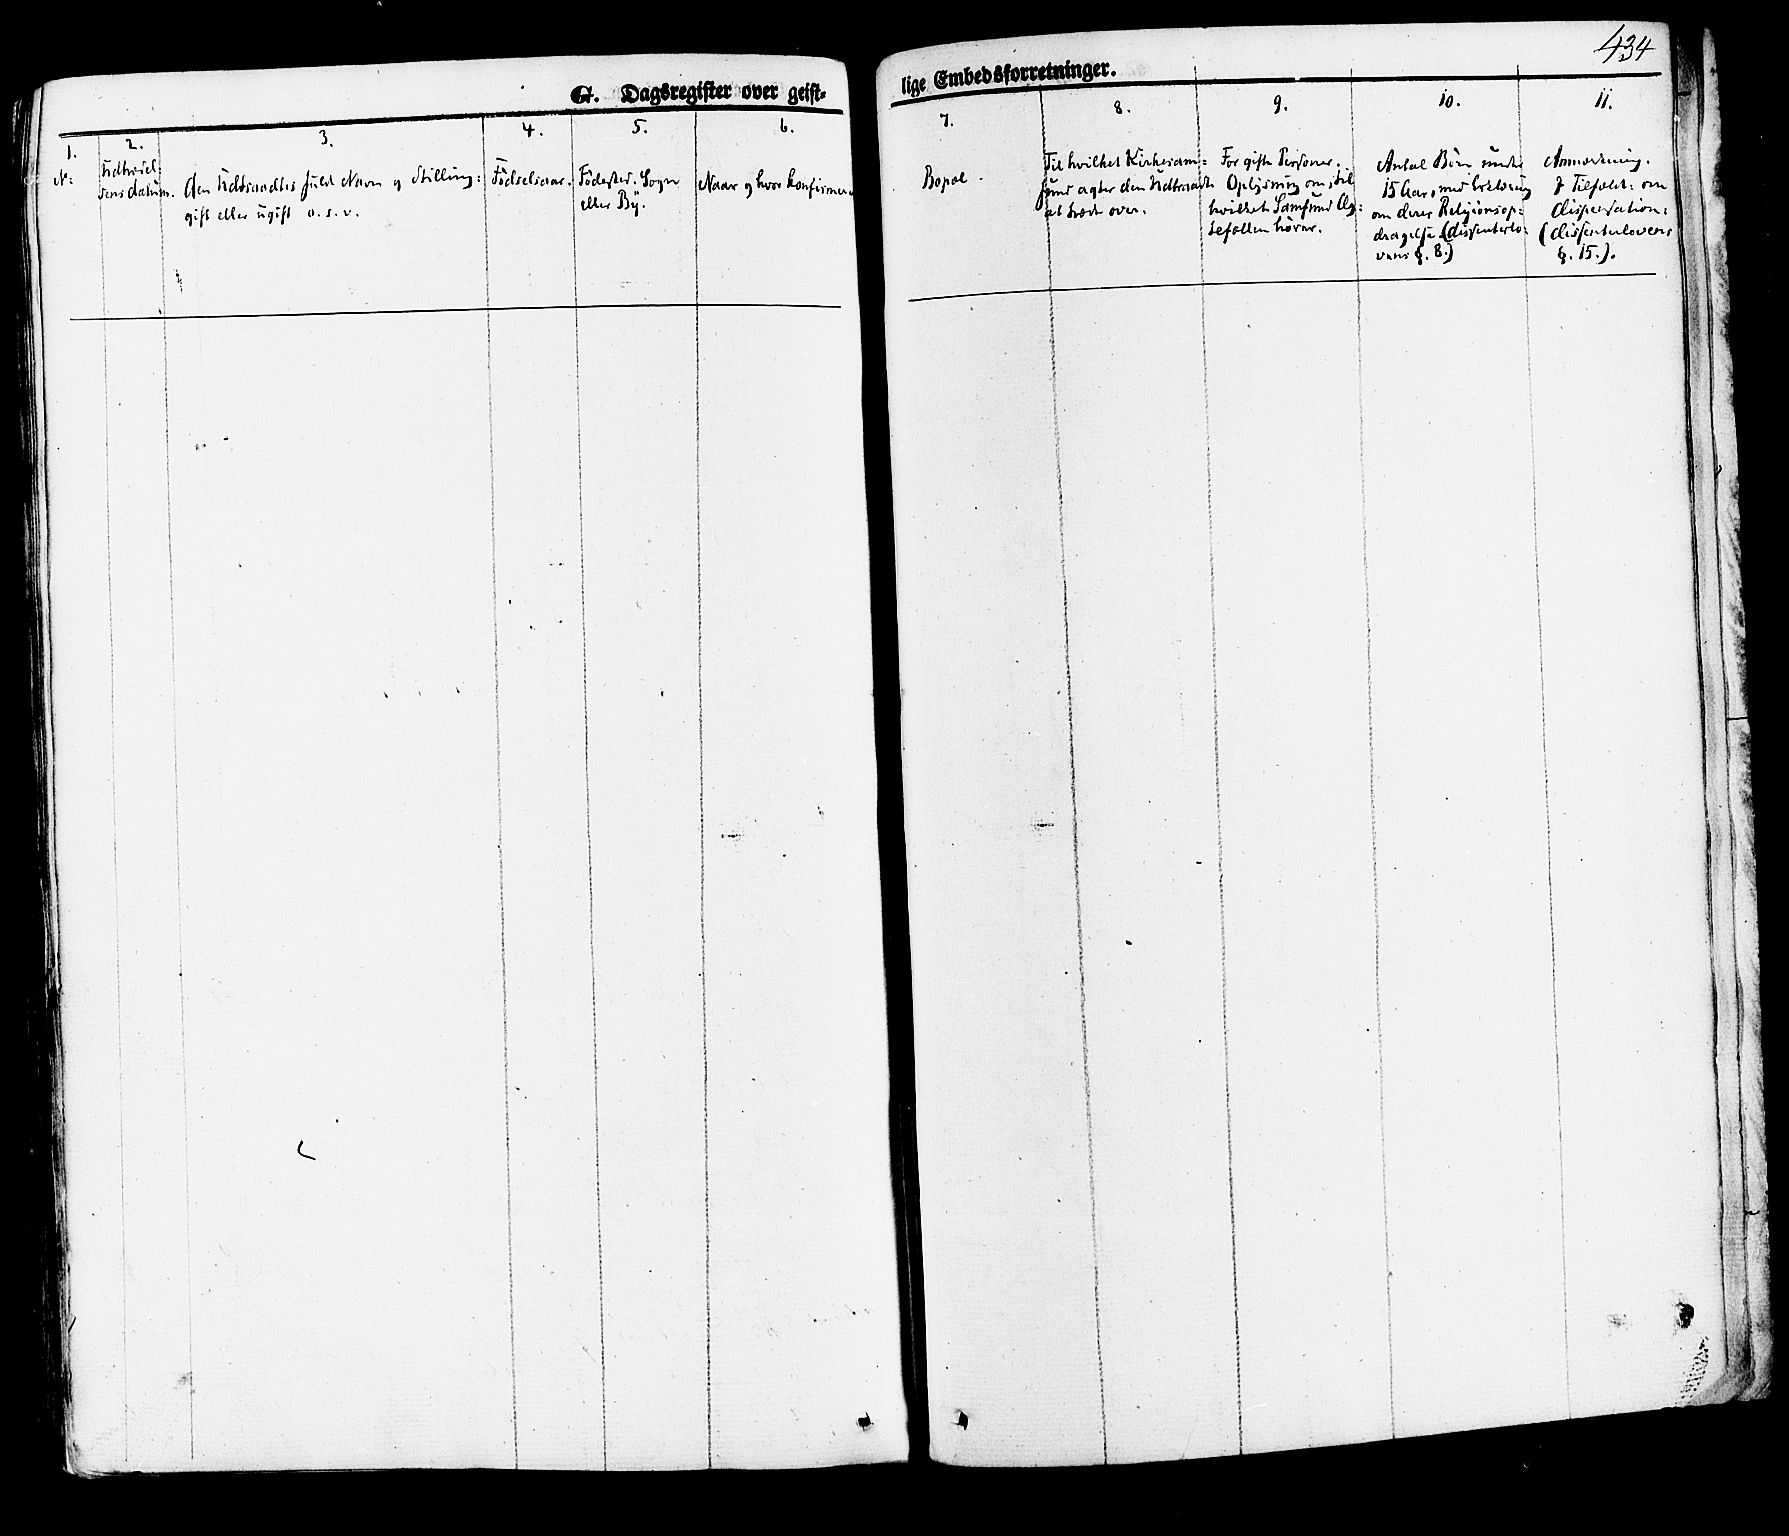 434
G. Dagsregister over geist-
lige Embedsforretninger.
1.
N:
2.
Udtrædel-
sens datum.
3.
Den Udtraadtes fulde Navn og Stilling:
gift eller ugift o. s. v.
4.
Fødselsaar.
5.
Fødested. Sogn
eller By.
6.
Naar og hvor konfirmeret
7.
Bopæl.
8.
Til hvilket Kirkesam=
fund agter den Udtraadte
at træde over.
9.
For gifte Personer.
Oplysning om, til
hvilket Samfund Æg:
tefællen hører.
10.
Antal Børn under
15 Aar, med Erklæring
om deres Religionsop=
dragelse (dissenterlo=
vens §. 8.)
11.
Anmærkning.
I Tilfælde: om
dispensation:
(dissenterlovens
§. 15.).